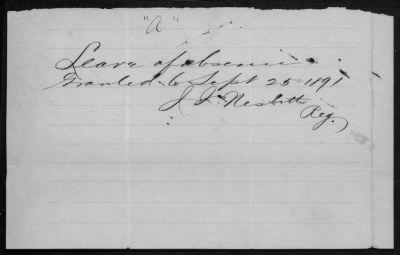 "A"
Leave of absence
Granted to Sept 25 1891
J. J. Nesbitt
Reg.